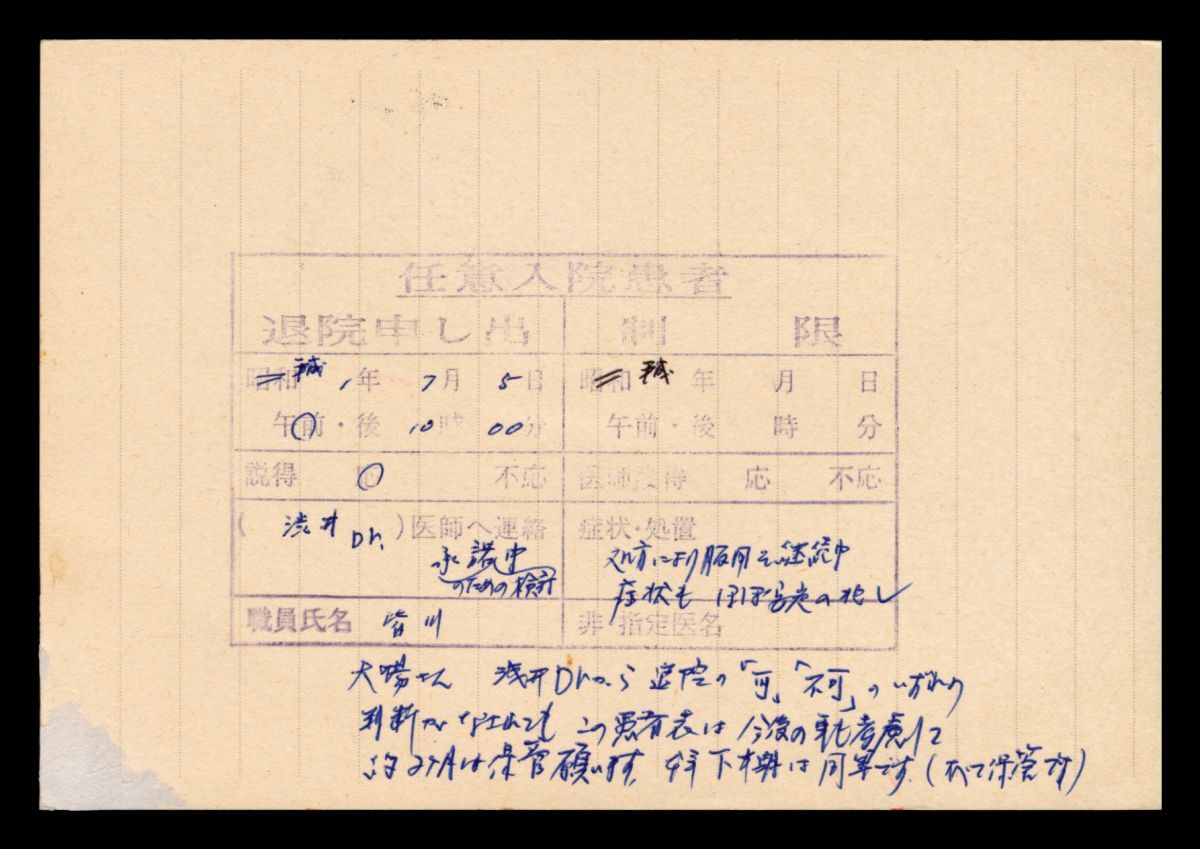 任意入院患者
退院申し出 制 限
昭和 平成 1年 7月 5日 昭和 平成 年 月 日
午前・後 10時 00分 午前・後 時 分
説得 応 不応 医師説得 応 不応
(渋井Dr.)医師へ連絡 症状・処置
承諾中 処方により服用を継続中
のための検討 症状も ほぼ
職員氏名 皆川 非・指定医名
大場さん 浅井Drから 退院の「可」「不可」のいずれの
判断が この患者表は 今後の 考慮して
約2ヶ月は保管願います。 下期は同等です。(すべて保管です)